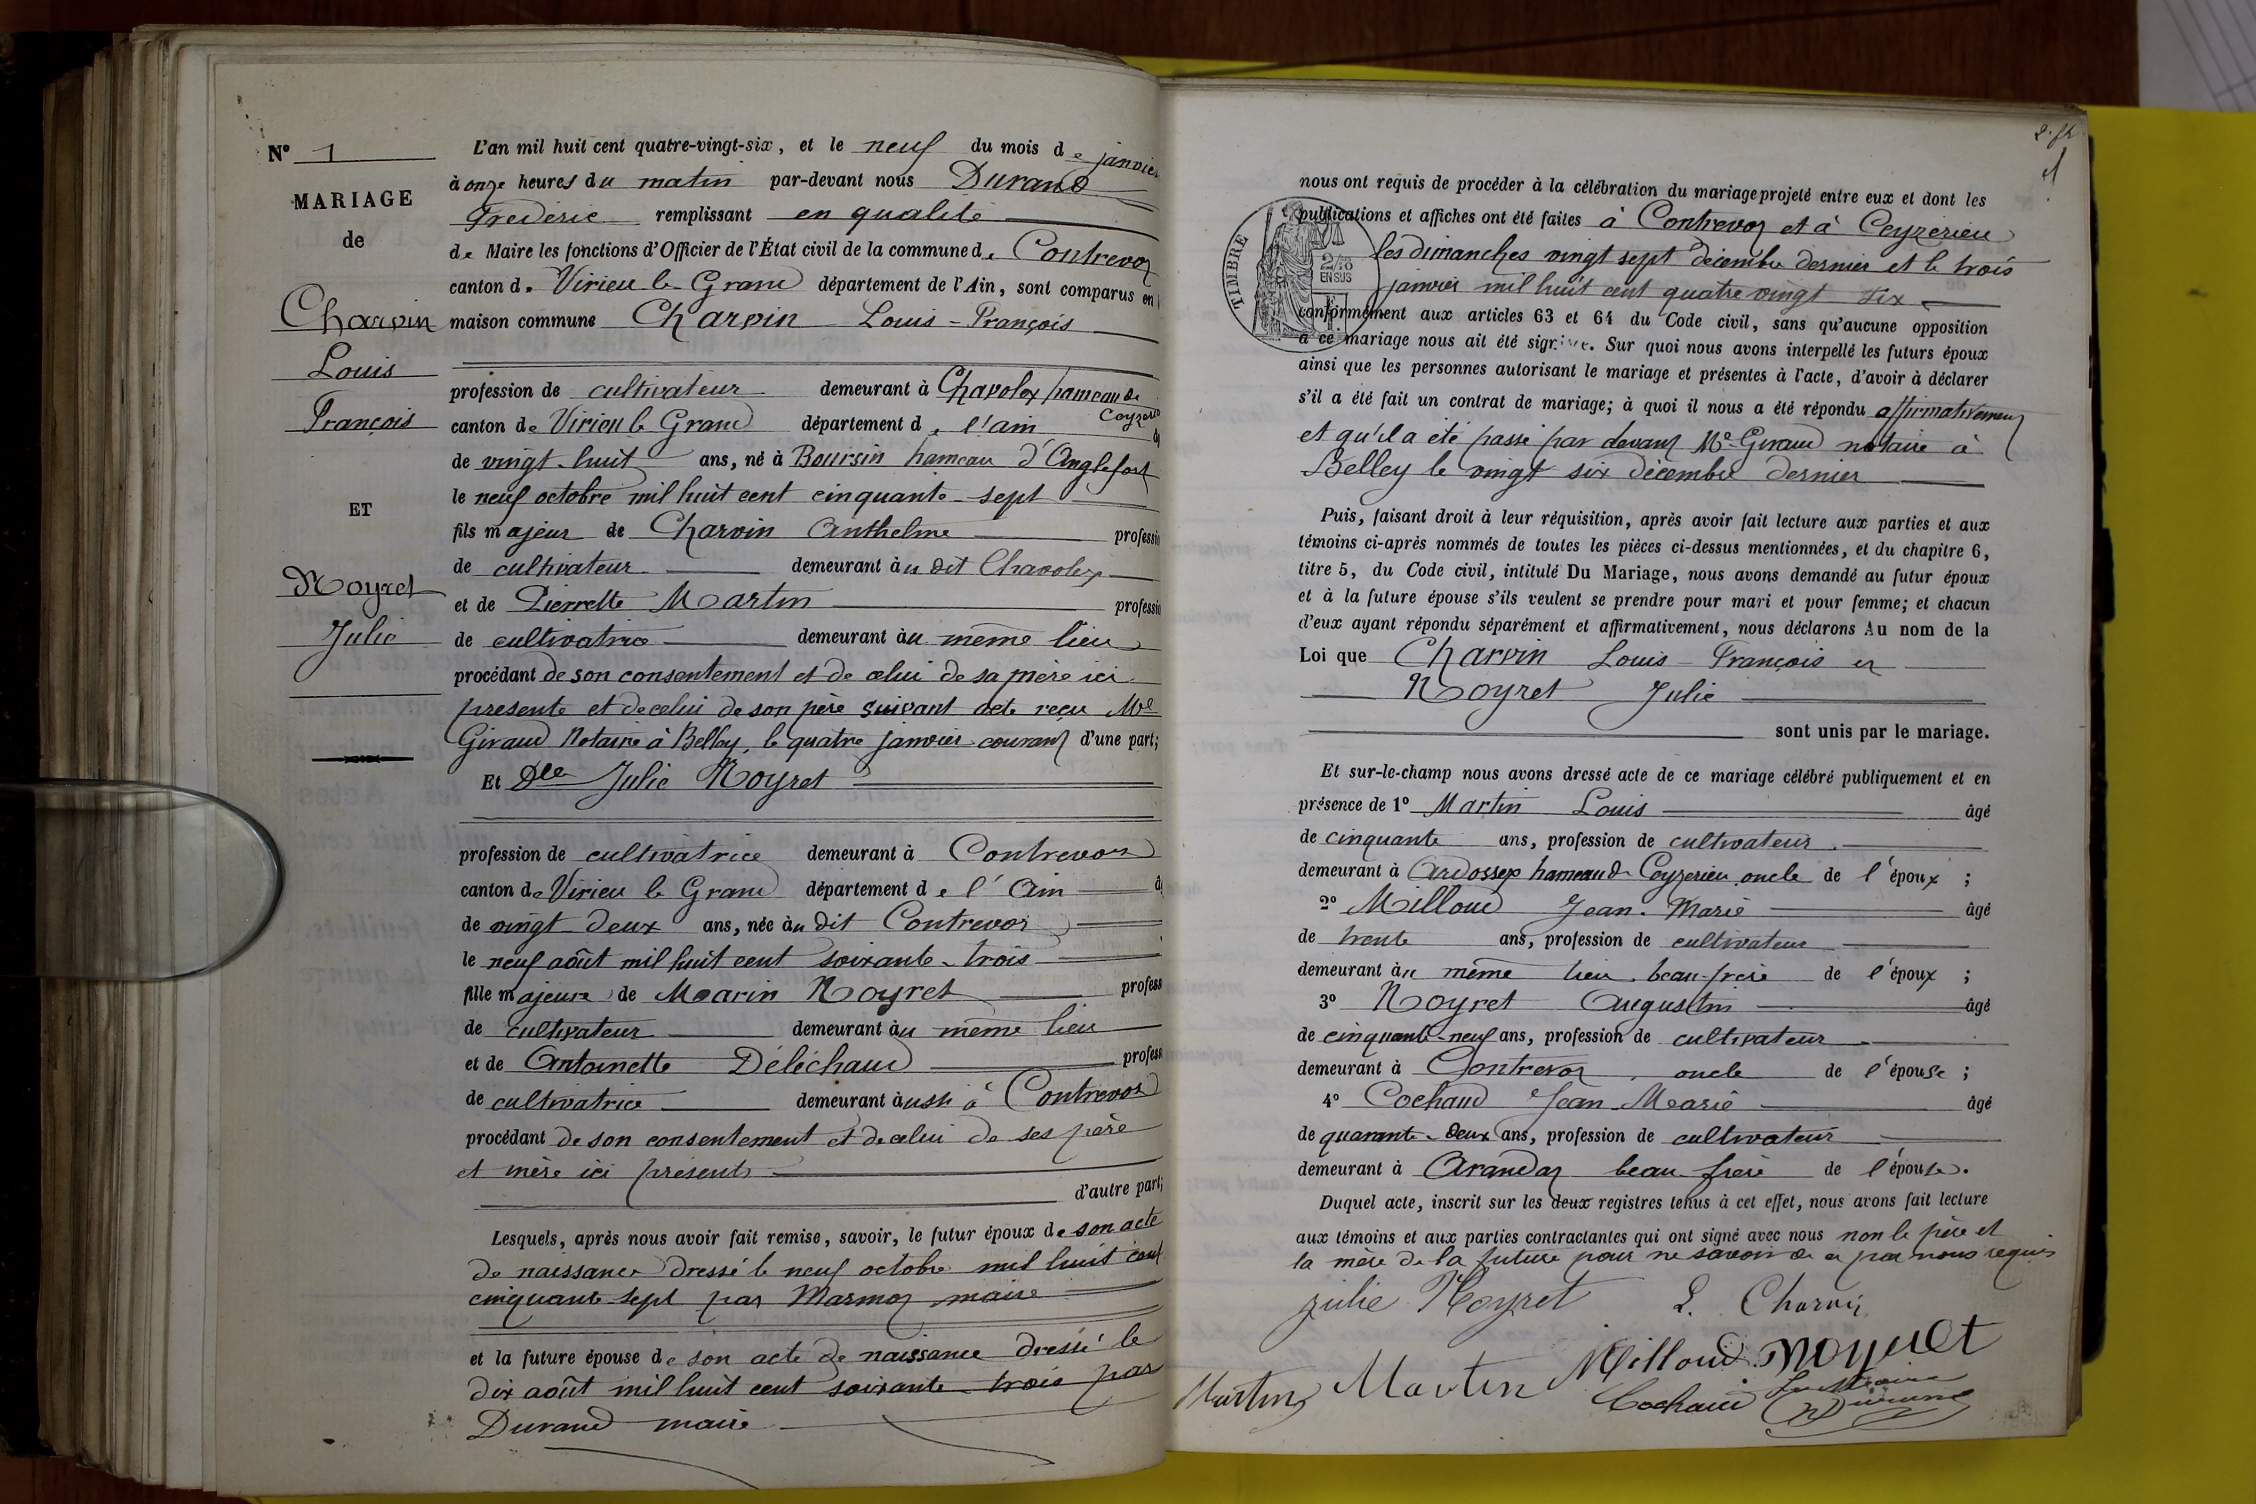 N° 1
MARIAGE
de
Charvin
Louis
François
ET
Moyret
Julie
L'an mil huit cent quatre-vingt-six, et le neuf du mois de janvier
à onze heures du matin par-devant nous Durand
Frédéric remplissant en qualité
de Maire les fonctions d'Officier de l'État civil de la commune de Contrevoz
canton de Virieu le Grand département de l'Ain, sont comparus en
maison commune Charvin Louis-François
profession de cultivateur demeurant à Chavolex hameau de
Ceyzerieu
canton de Virieu le Grand département de l'ain
de vingt-huit ans, né à Boursin hameau d'Anglefort
le neuf octobre mil huit cent cinquante-sept
fils majeur de Charvin Anthelme profession
de cultivateur demeurant au dit Chavolex
et de Pierrette Martin profession
de cultivatrice demeurant au même lieu
procédant de son consentement et de celui de sa mère ici
présente et de celui de son père suivant acte reçu Me
Giraud Notaire à Belley, le quatre janvier courant d'une part;
Et Dlle Julie Moyret
profession de cultivatrice demeurant à Contrevoz
canton de Virieu le Grand département de l'Ain
de vingt deux ans, née au dit Contrevoz
le neuf août mil huit cent soixante-trois
fille majeure de Marin Moyret profess
de cultivateur demeurant au même lieu
et de Antoinette Déléchaud profess
de cultivatrice demeurant aussi à Contrevoz
procédant de son consentement et de celui de ses père
et mère ici présents
d'autre part;
Lesquels, après nous avoir fait remise, savoir, le futur époux de son acte
de naissance dressé le neuf octobre mil huit cent
cinquante-sept par Marmoz maire
et la future épouse de son acte de naissance dressé le
dix août mil huit cent soixante trois par
Durand maire
nous ont requis de procéder à la célébration du mariage projeté entre eux et dont les
publications et affiches ont été faites à Contrevoz et à Ceyzerieu
les dimanches vingt sept décembre dernier et le trois
janvier mil huit cent quatre vingt six
TIMBRE
2/10
EN SUS
conformément aux articles 63 et 64 du Code civil, sans qu'aucune opposition
à ce mariage nous ait été signifiée. Sur quoi nous avons interpellé les futurs époux
ainsi que les personnes autorisant le mariage et présentes à l'acte, d'avoir à déclarer
s'il a été fait un contrat de mariage; à quoi il nous a été répondu affirmativement
et qu'il a été passé par devant Me Giraud notaire à
Belley le vingt six décembre dernier
Puis, faisant droit à leur réquisition, après avoir fait lecture aux parties et aux
témoins ci-après nommés de toutes les pièces ci-dessus mentionnées, et du chapitre 6,
titre 5, du Code civil, intitulé Du Mariage, nous avons demandé au futur époux
et à la future épouse s'ils veulent se prendre pour mari et pour femme; et chacun
d'eux ayant répondu séparément et affirmativement, nous déclarons Au nom de la
Loi que Charvin Louis-François et
Moyret Julie
sont unis par le mariage.
Et sur-le-champ nous avons dressé acte de ce mariage célébré publiquement et en
présence de 1° Martin Louis âgé
de cinquante ans, profession de cultivateur
demeurant à Ardossex hameau de Ceyzerieu oncle de l'époux ;
2° Milloud Jean-Marie âgé
de trente ans, profession de cultivateur
demeurant au même lieu beau-frère de l'époux ;
3° Moyret Augustin âgé
de cinquante-neuf ans, profession de cultivateur
demeurant à Contrevoz oncle de l'épouse ;
4° Cochaud Jean-Marie âgé
de quarante-deux ans, profession de cultivateur
demeurant à Arandaz beau frère de l'épouse.
Duquel acte, inscrit sur les deux registres tenus à cet effet, nous avons fait lecture
aux témoins et aux parties contractantes qui ont signé avec nous non le père et
la mère de la future pour ne savoir de ce par nous requis
julie Moyret L. Charvin
Milloud Moyret
Martin Martin Cochaud Le Maire
Durand